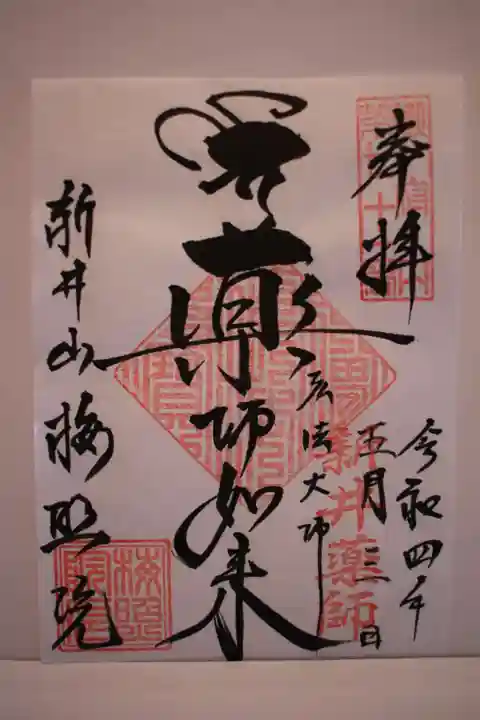 奉拝
令和四年
五月三日
新井薬師
弘法大師
薬師如来
新井山梅照院
梅照院